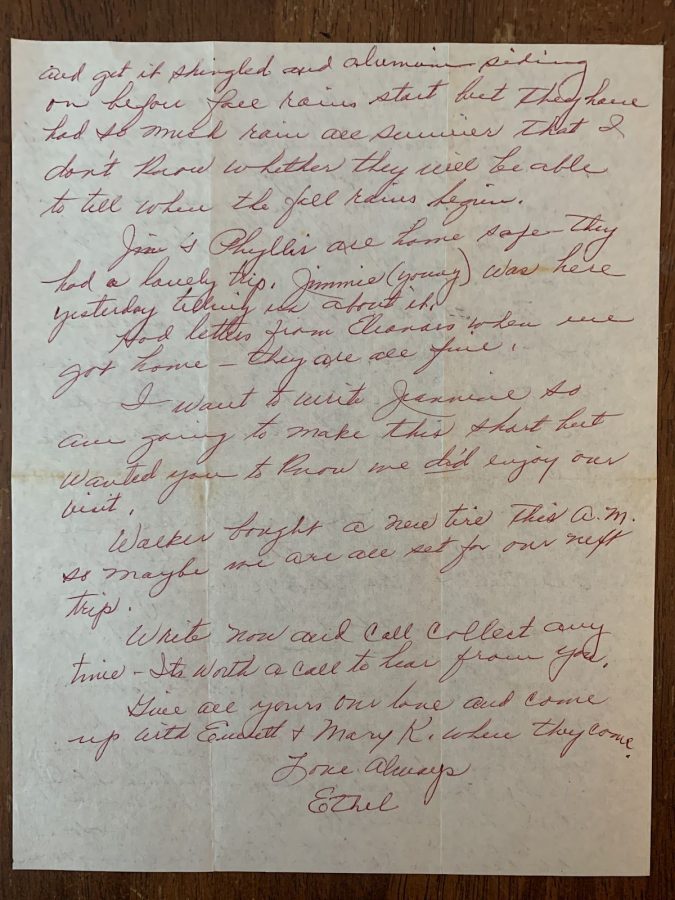 and get it shingled and aluminum siding
on before fall rains start but they have
had so much rain all summer that I
don't know whether they will be able
to tell when the fall rains begin.
Jim & Phyllis are home safe - they
had a lovely trip. Jimmie (young) was here
yesterday telling us about it.
Had letters from when we
got home - they are all fine.
I want to write Jeannine so
am going to make this short but
wanted you to know we did enjoy our
visit.
Walker bought a new tire this A.M.
so maybe we are all set for our next
trip.
Write now and call collect any
time - Its worth a call to hear from you.
Give all yours our love and come
up with Emmett & Mary K. when they come.
Love Always
Ethel